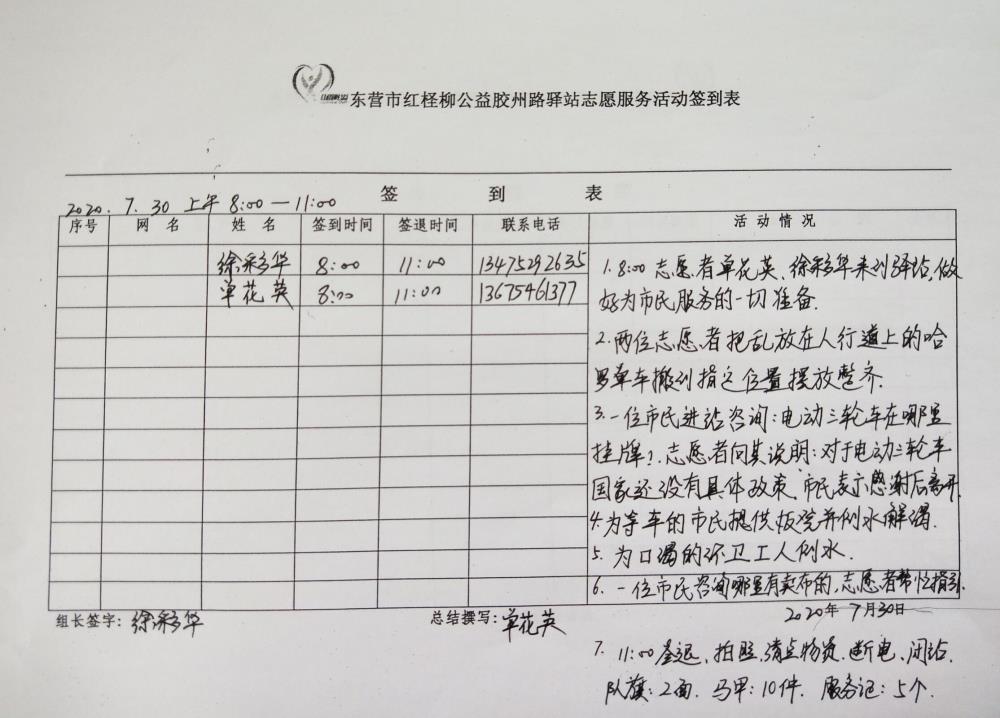 东营市红柽柳公益胶州路驿站志愿服务活动签到表
签 到 表
2020.7.30 上午 8:00—11:00
序号 网 名 姓 名 签到时间 签退时间 联系电话 活动情况
徐彩华 8:00 11:00 13475292635
单花英 8:00 11:00 13675461377
1.8:00 志愿者单花英、徐彩华来到驿站,做
好为市民服务的一切准备.
2.两位志愿者把乱放在人行道上的哈
罗单车搬到指定位置摆放整齐.
3.一位市民进站咨询:电动三轮车在哪里
挂牌?.志愿者向其说明:对于电动三轮车
国家还没有具体政策、市民表示感谢后离开.
4.为等车的市民提供板凳并倒水解渴.
5.为口渴的环卫工人倒水.
6.一位市民咨询哪里有卖布的,志愿者帮忙指引.
2020年7月30日
组长签字:徐彩华 总结撰写:单花英
7. 11:00签退、拍照,清点物资、断电、闭站.
队旗:2面. 马甲:10件. 服务记:5个.